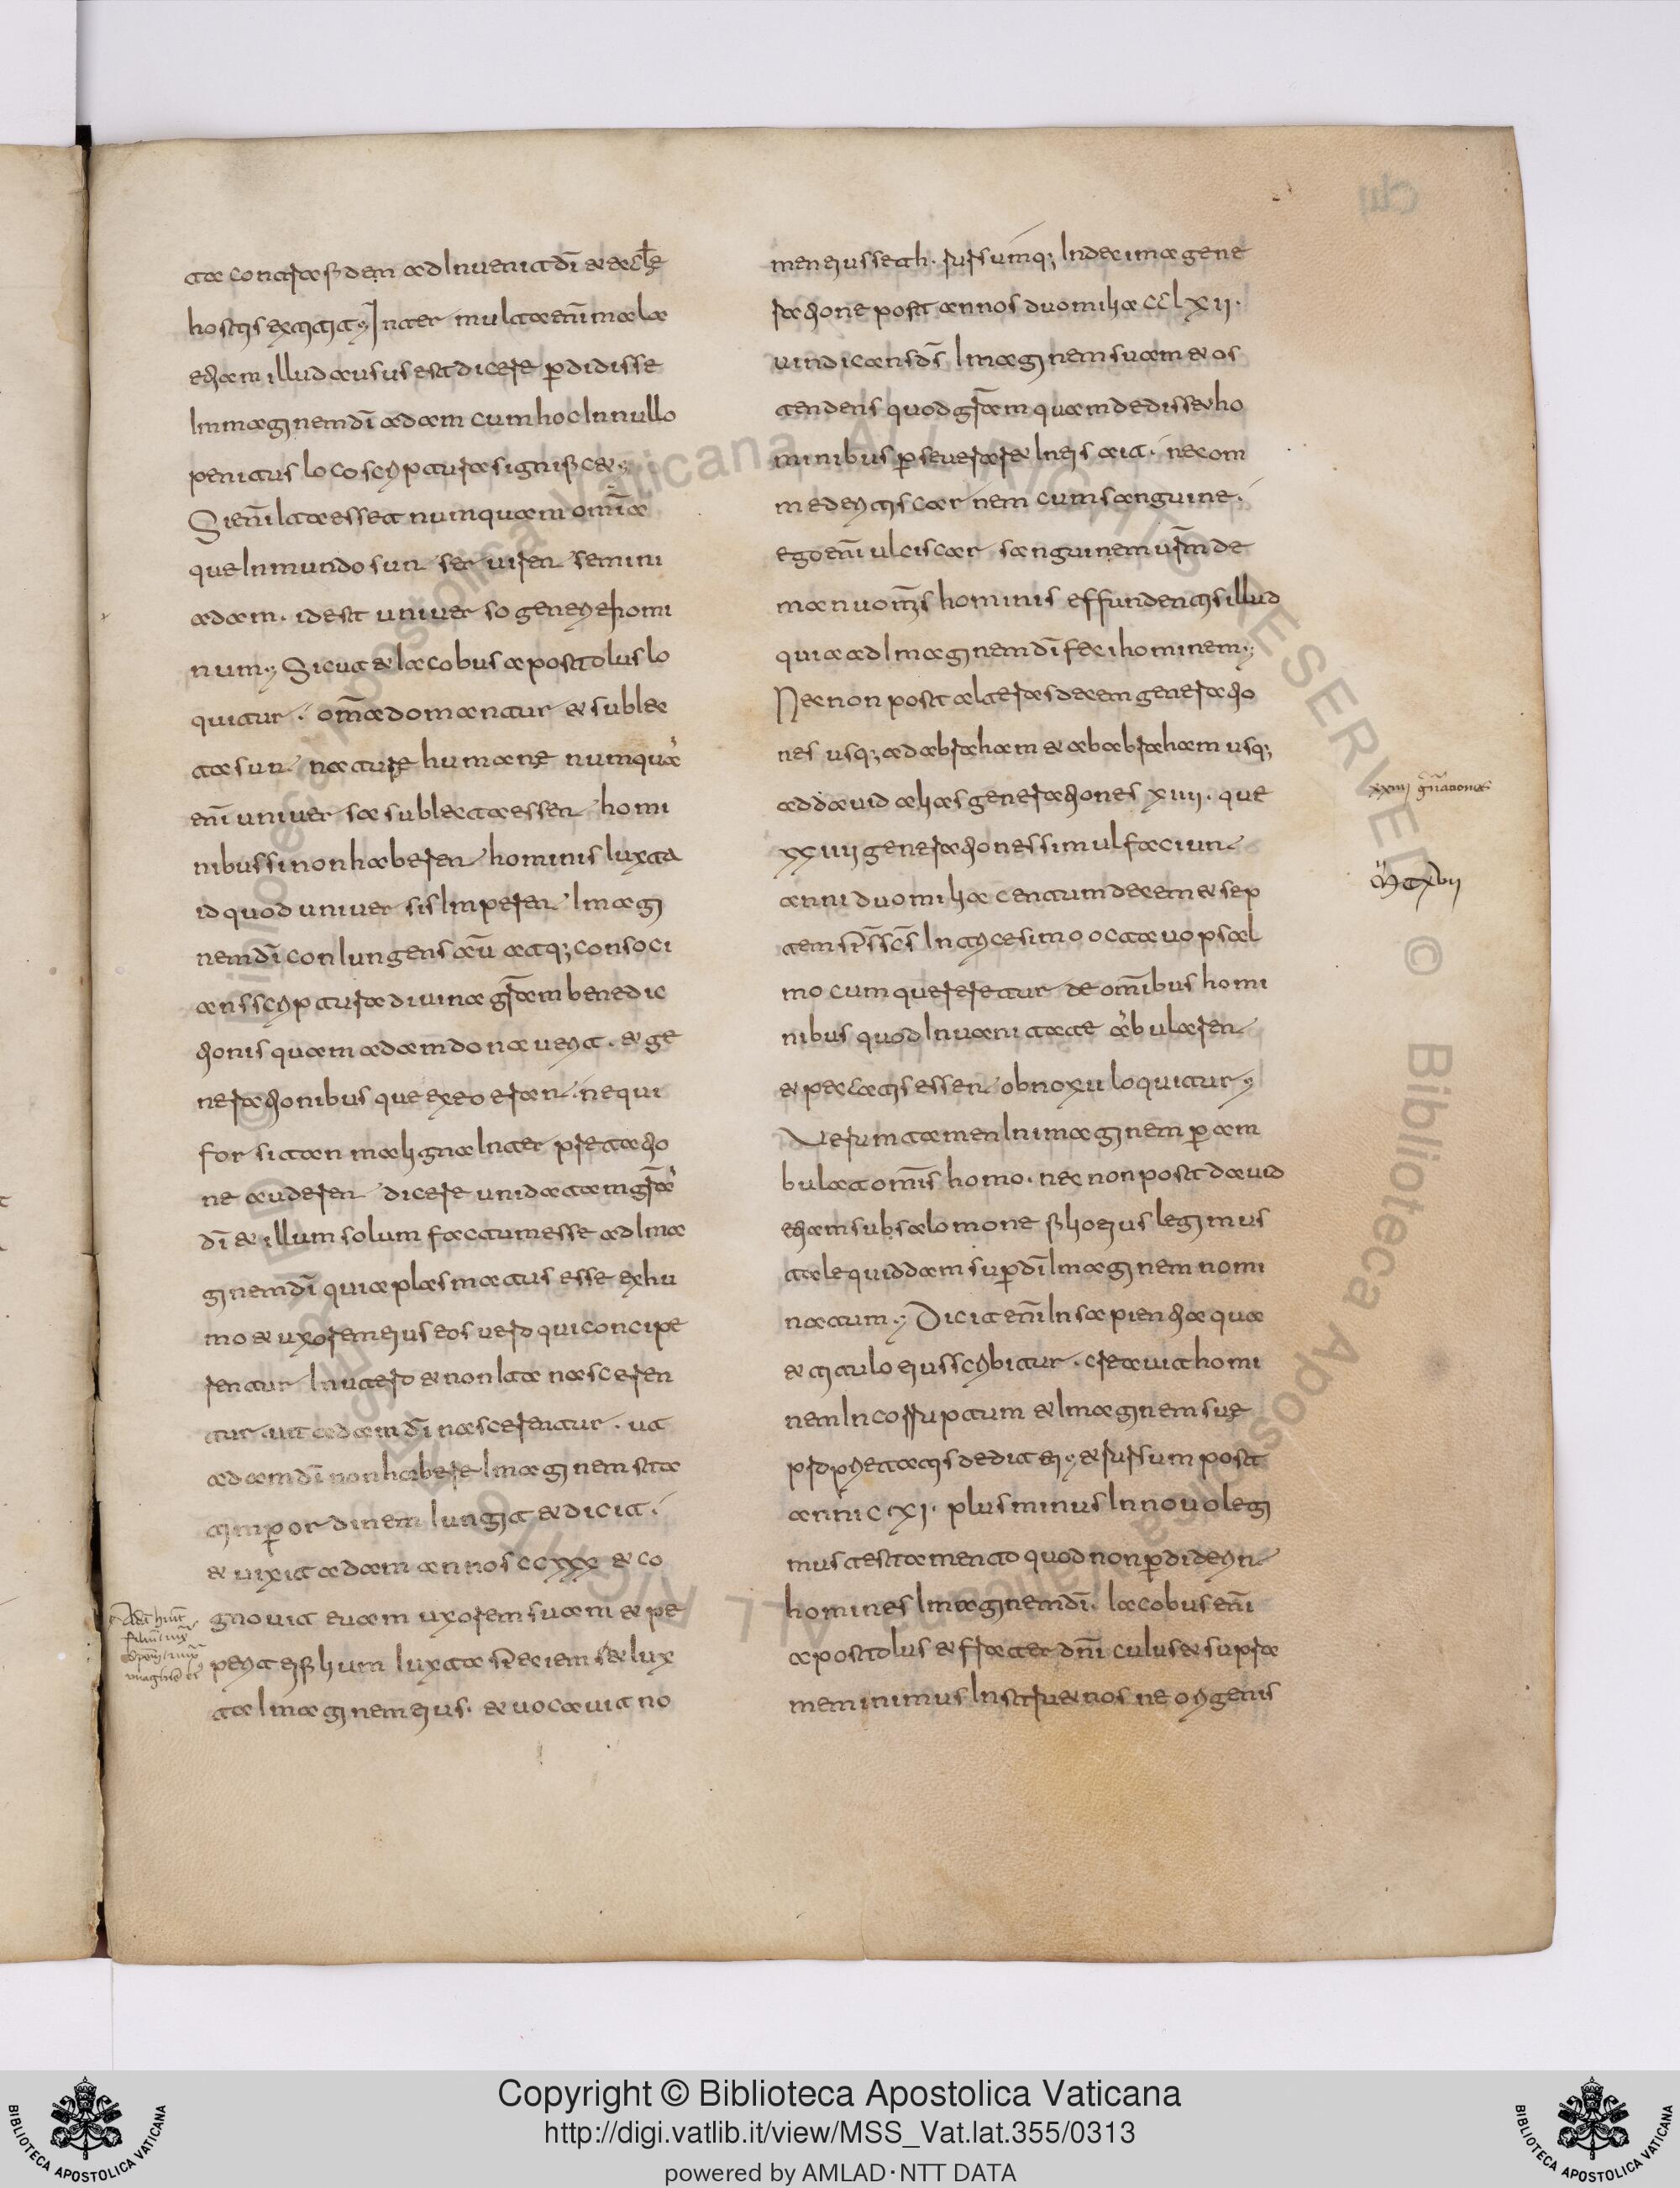 ta contra fidem adinuenit dī & æcl̄ę
hostis extitit; Inter multa enī mala
etiam illud ausus est dicere ꝑdidisse
immaginem dī adam cum hoc in nullo
penitus loco scriptura significet;
Si enī ita esset numquam om̄ia
que in mundo sunt seruirent semini
adam. id est uniuerso generi homi
num; Sicut & iacobus apostolus lo
quitur. om̄a domantur & subiec
ta sunt naturę humanę numquā
enī uniuersa subiecta essent homi
nibus si non haberent hominis iuxta
id quod uniuersis imperent imagi
nem dī coniungens aū atq; consoci
ans scriptura diuina gr̄am benedic
tionis quam adam donauerit. & ge
nerationibus que ex eo erant. ne qui
forsitan maligna inter pretatio
ne auderent dicere uni datam gr̄ā
dī & illum solum factum esse ad ima
ginem dī quia plasmatus esse ex hu
mo & uxorem eius eos uero qui concipe
rentur in utero & non ita nasceren
tur. ut adam dī nasceretur. ut
adam dī non habere imaginem sta
tim ꝑ ordinem iungit & dicit.
& uixit adam annos ccxxx & co
gnouit euam uxorem suam & pe
perit ei filium iuxta speciem s& iux
ta imaginem eius. & uocauit no
men eius seth. rursumq; in decima gene
ratione post annos duo milia cclxii.
uindicans ds̄ imaginem suam & os
tendens quod gr̄am quam dediss& ho
minibus ꝑseuerar& in eis ait. ne com
mederitis carnem cum sanguine.
ego enī ulciscar sanguinem ur̄m de
manu om̄s hominis effundentis illud
quia ad imaginem dī feci hominem;
Nec non post alteras decem generatio
nes usq; ad abraham & ab abraham usq;
ad dauid alias generationes xiiii. que
xxiiii generationes simul faciunt
anni duo milia centum decem & sep
tem sp̄s sc̄s in tricesimo octauo psal
mo cum quereretur de om̄ibus homi
nibus quod in uanitate ābularent
& peccatis essent obnoxii loquitur;
Uerum tamen in imaginem ꝑam
bulat om̄is homo. nec non post dauid
etiam sub salomone filio eius legimus
tale quiddam suꝑ dī imaginem nomi
natum; Dicit enī in sapientia qua
& titulo eius scribitur. creauit homi
nem incorruptum & imaginem suę
proprietatis dedit ei; & rursum post
anni cxci. plus minus in nouo legi
mus testamento quod non ꝑdiderint
homines imaginem dī. iacobus enī
apostolus & frater dn̄i cuius & supra
meminimus instru& nos ne origenis
xxiiij gn̄ationes